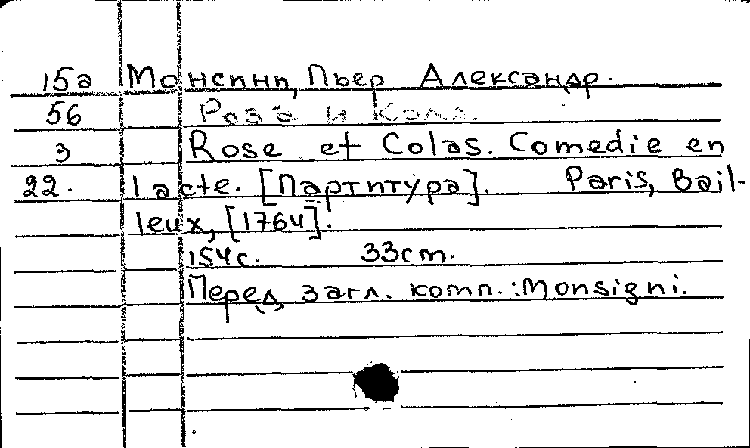 15а Монсиньи, Пьер Александр.
56 Роза и Кола.
3 Rose et Colas. Comedie en
22. 1 acte. [Партитура]. Paris, Bail-
leux, [1764].
154с. 33cm.
Перед загл. комп.: Monsigni.